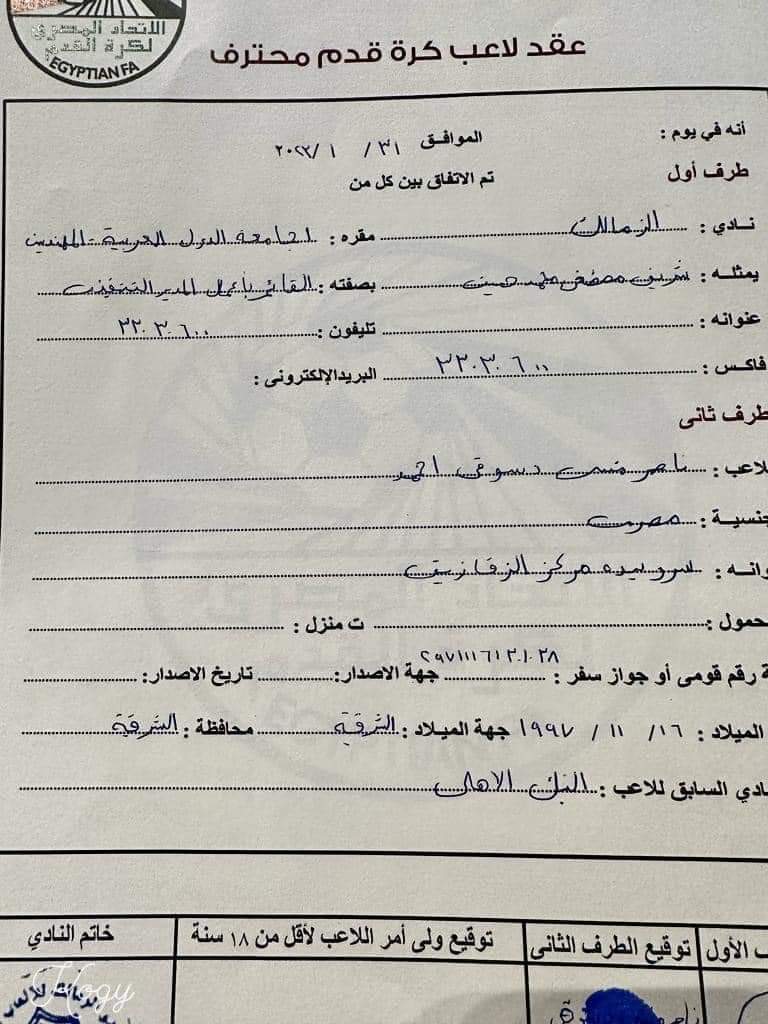 الاتحاد المصرى
لكرة القدم
EGYPTIAN FA
عقد لاعب كرة قدم محترف
أنه في يوم : الموافق ٣١ / ١ /٢٠٢٣
طرف أول تم الاتفاق بين كل من
نادي : الزمالك مقره : ١ جامعة الدول العربية - المهندسين
يمثله : شريف مصطفى محمد حسين بصفته : القائم بأعمال المدير التنفيذى
عنوانه : تليفون : ٣٣٠٣٠٦٠٠
فاكس : ٣٣٠٣٠٦٠٠ البريد الإلكترونى :
طرف ثانى
لاعب : ناصر منسى دسوقى احمد
جنسية : مصرى
وانه : مركز الزقازيق
حمول : ت منزل :
ة رقم قومى أو جواز سفر : ٢٩٧١١١٦١٣٠١٠٣٨ جهة الاصدار: تاريخ الاصدار:
الميلاد : ١٦ / ١١ / ١٩٩٧ جهة الميلاد : الشرقية محافظة : الشرقية
ادي السابق للاعب : البنك الاهلى
ف الأول توقيع الطرف الثانى توقيع ولى أمر اللاعب لأقل من ١٨ سنة خاتم النادي
Hogy